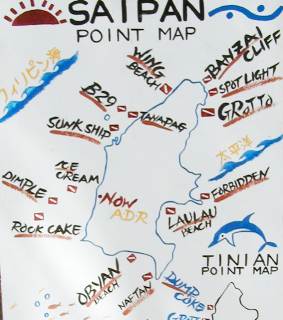 SAIPAN
POINT MAP
フィリピン海
WING
BEACH
BANZAI
CLIFF
SPOT LIGHT
GROTTO
B29
TANAPAG
SUNK SHIP
太平洋
ICE
CREAM
DIMPLE
FORBIDDEN
NOW
ADR
LAULAU
BEACH
ROCK CAKE
TINIAN
POINT MAP
OBYAN
BEACH
NAFTAN
DUMP
COKE
GROTTO